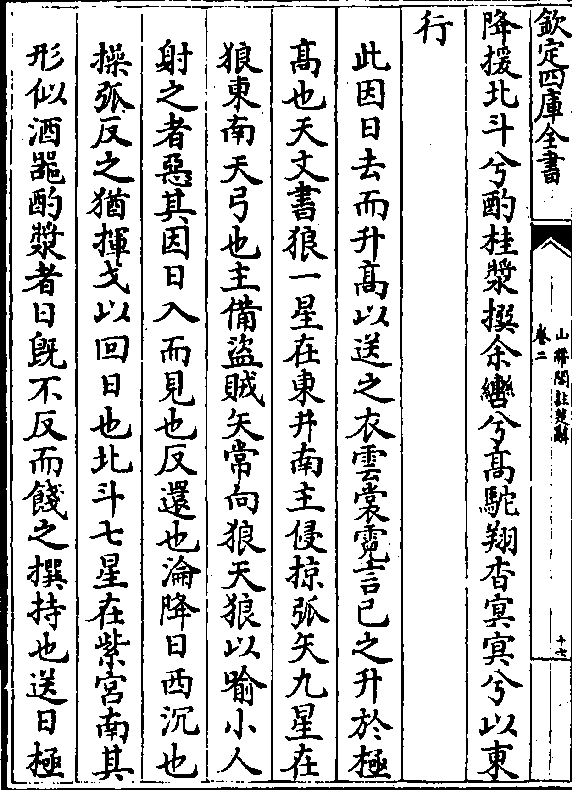 欽定四庫全書
山帶閣註楚辭
卷二
十七
降援北斗兮酌桂漿撰余轡兮髙駝翔杳冥冥兮以東
行
此因日去而升髙以送之衣雲裳霓言己之升於極
髙也天文書狼一星在東井南主侵掠弧矢九星在
狼東南天弓也主備盜賊矢常向狼天狼以喻小人
射之者惡其因日入而見也反還也淪降日西沉也
操弧反之猶揮戈以回日也北斗七星在紫宫南其
形似酒噐酌漿者日既不反而餞之撰持也送日極